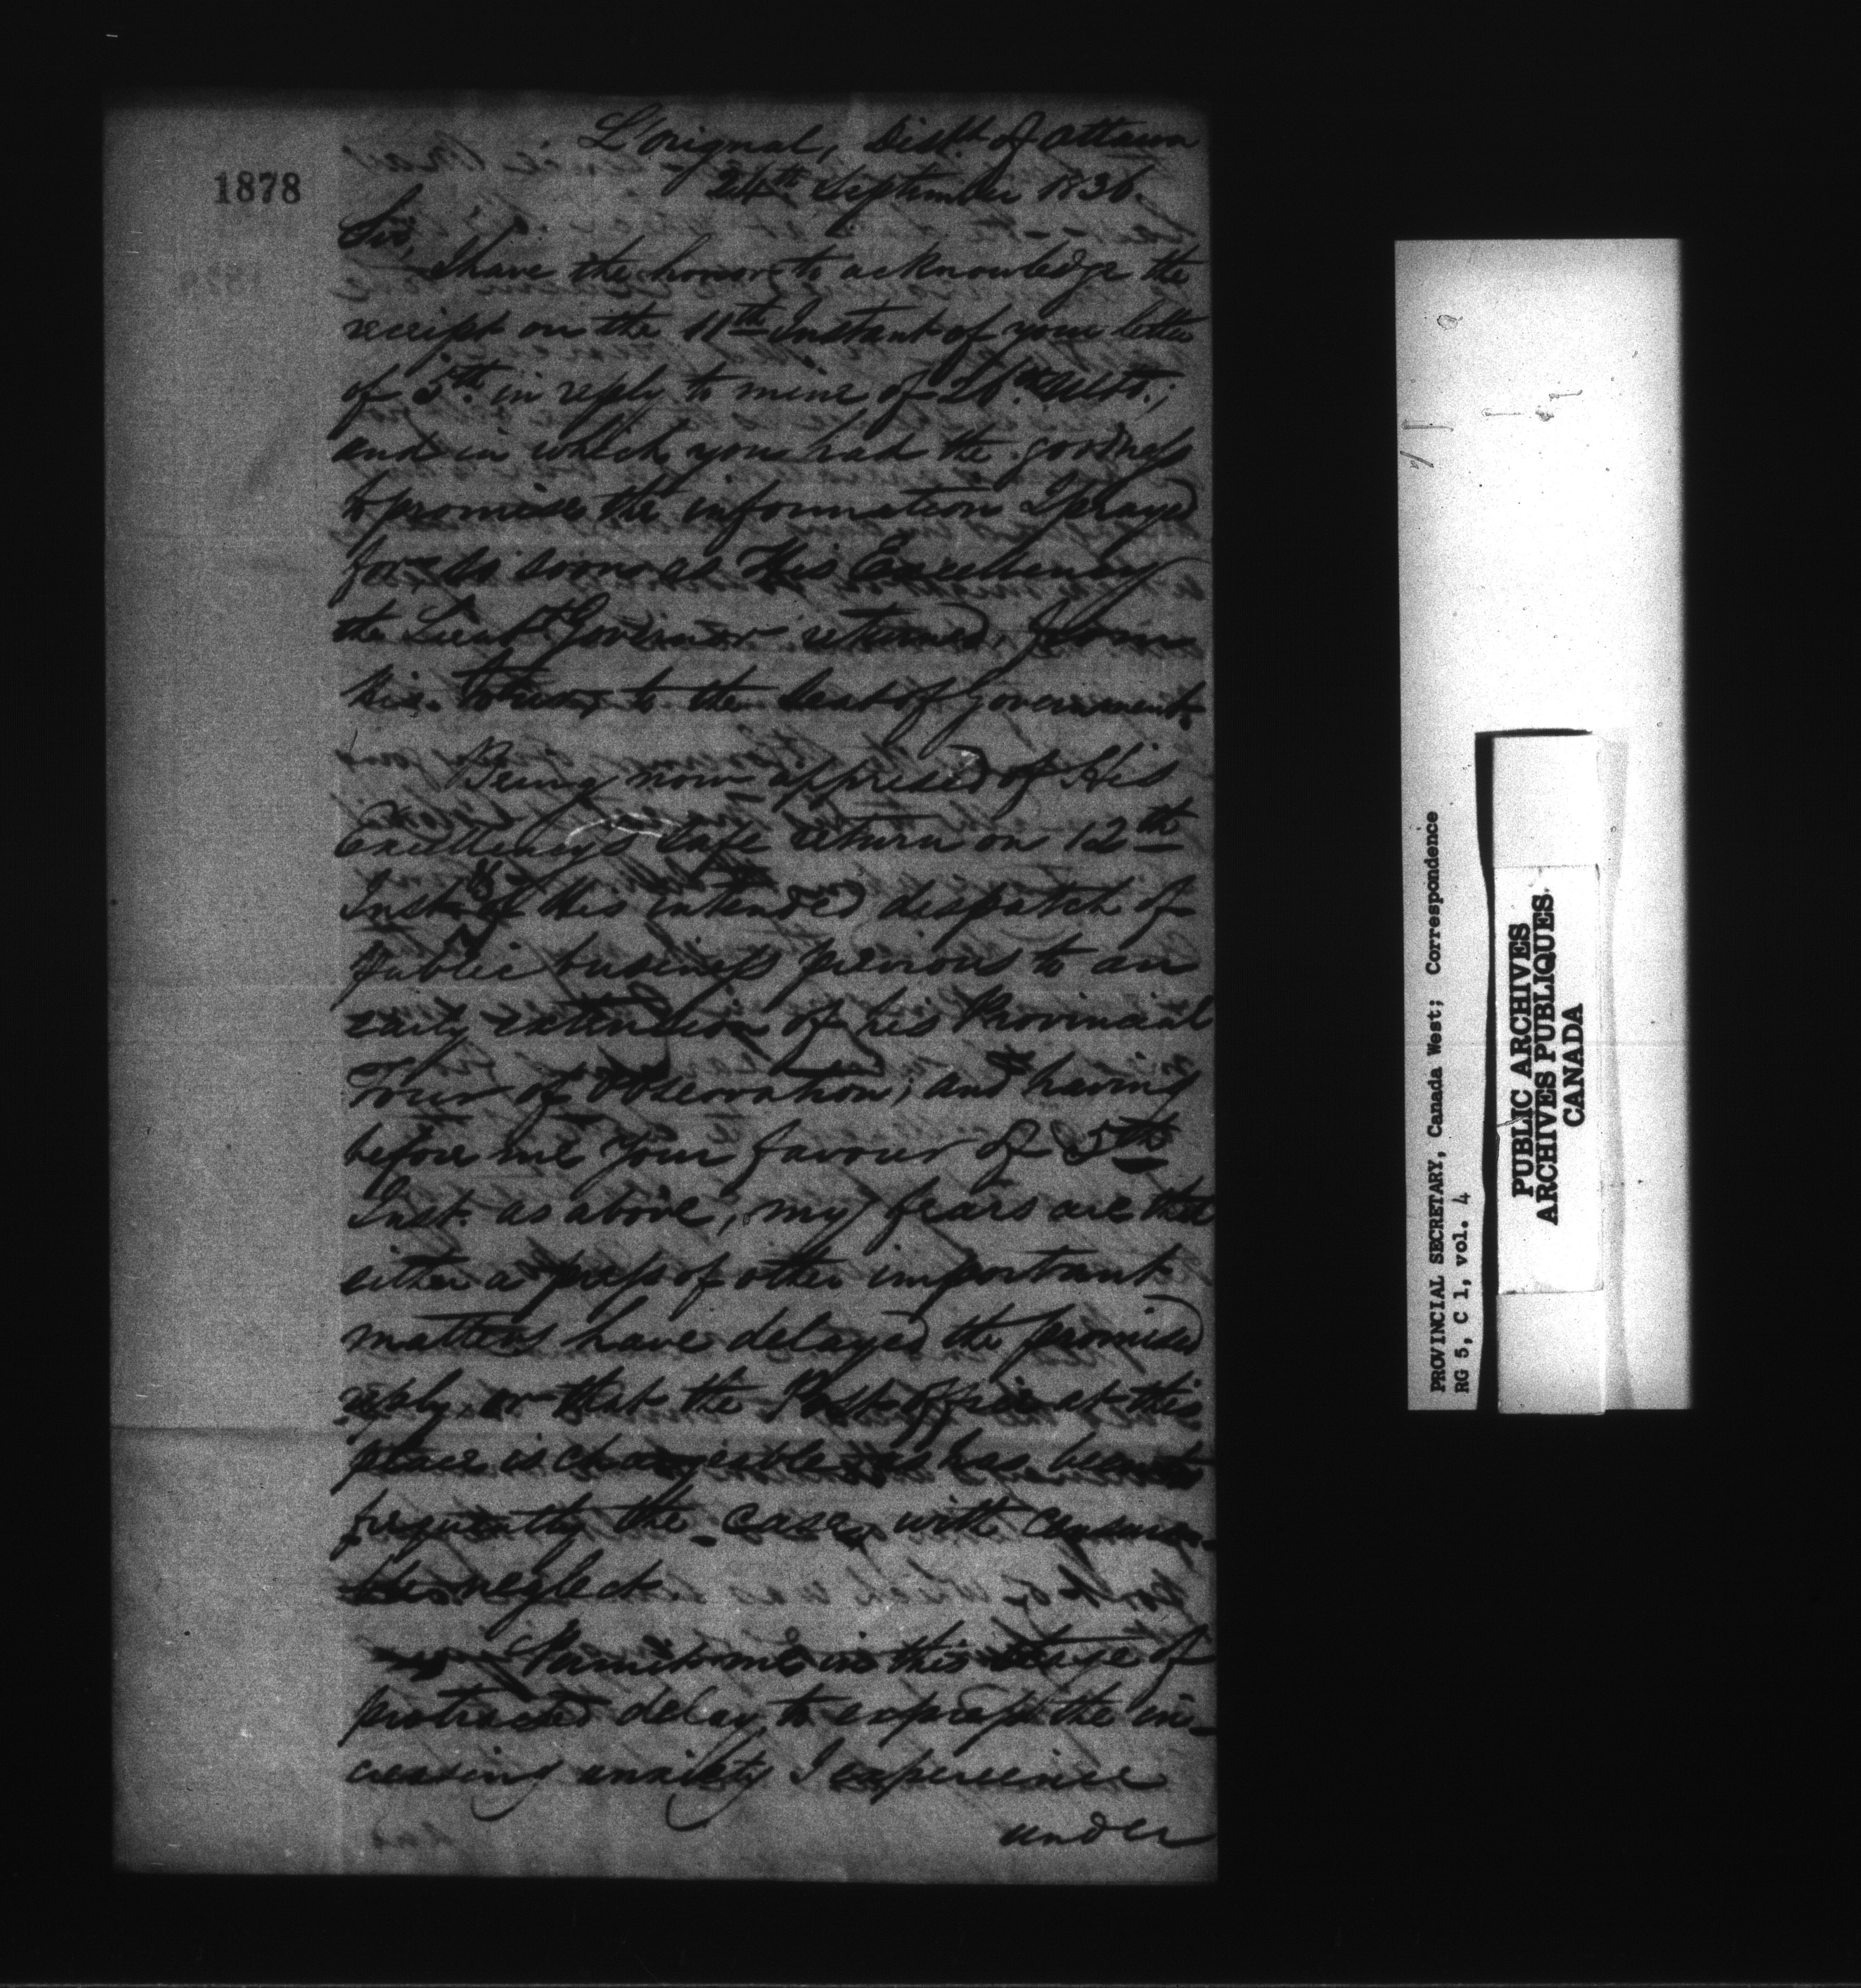 1878
L'orignal, Distt. of Ottawa
24th September 1836.
Sir,
I have the honor to acknowledge the
receipt on the 11th Instant of your letter
of 5th. in reply to mine of 26th. Ulto.;
and in which you had the goodness
to promise the information I prayed
for so soon as His Excellency
the Lieut. Governor returned from
his to the Seat of Government.
Being now apprised of His
Excellency's safe return on 12th
Inst. of his intended dispatch of
public business previous to an
early extension of his Provincial
Tour of Observation; and having
before me Your favour of 5th
Inst. as above, my fears are that
either a press of other important
matters have delayed the promised
reply, or that the Post office at this
place is chargeable, as has been
frequently the case, with censura-
ble neglect.
Permit me in this state of
protracted delay, to express the in-
creasing anxiety I experience
under
PROVINCIAL SECRETARY, Canada West; Correspondence
RG 5, C 1, vol. 4
PUBLIC ARCHIVES
ARCHIVES PUBLIQUES
CANADA